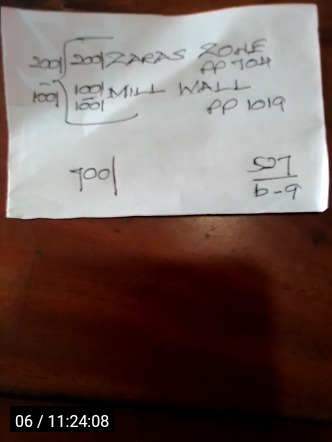 200/ 200/ ZARAS ZONE
PP 704
100/ 100/ MILL WALL
100/ PP 1019
700/
507
b-9
06 / 11:24:08